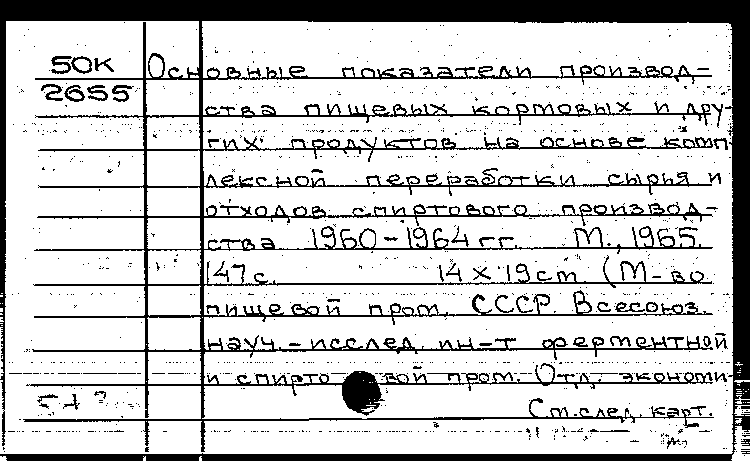 50К
2655
Основные показатели производ-
ства пищевых кормовых и дру-
гих продуктов на основе комп-
лексной переработки сырья и
отходов спиртового производ-
ства 1960-1964 гг. М., 1965.
147 с. 14 х 19 cm (М-во
пищевой пром. СССР. Всесоюз.
науч.-исслед. ин-т ферментной
и спиртовой пром. Отд. экономи-
См. след. карт.